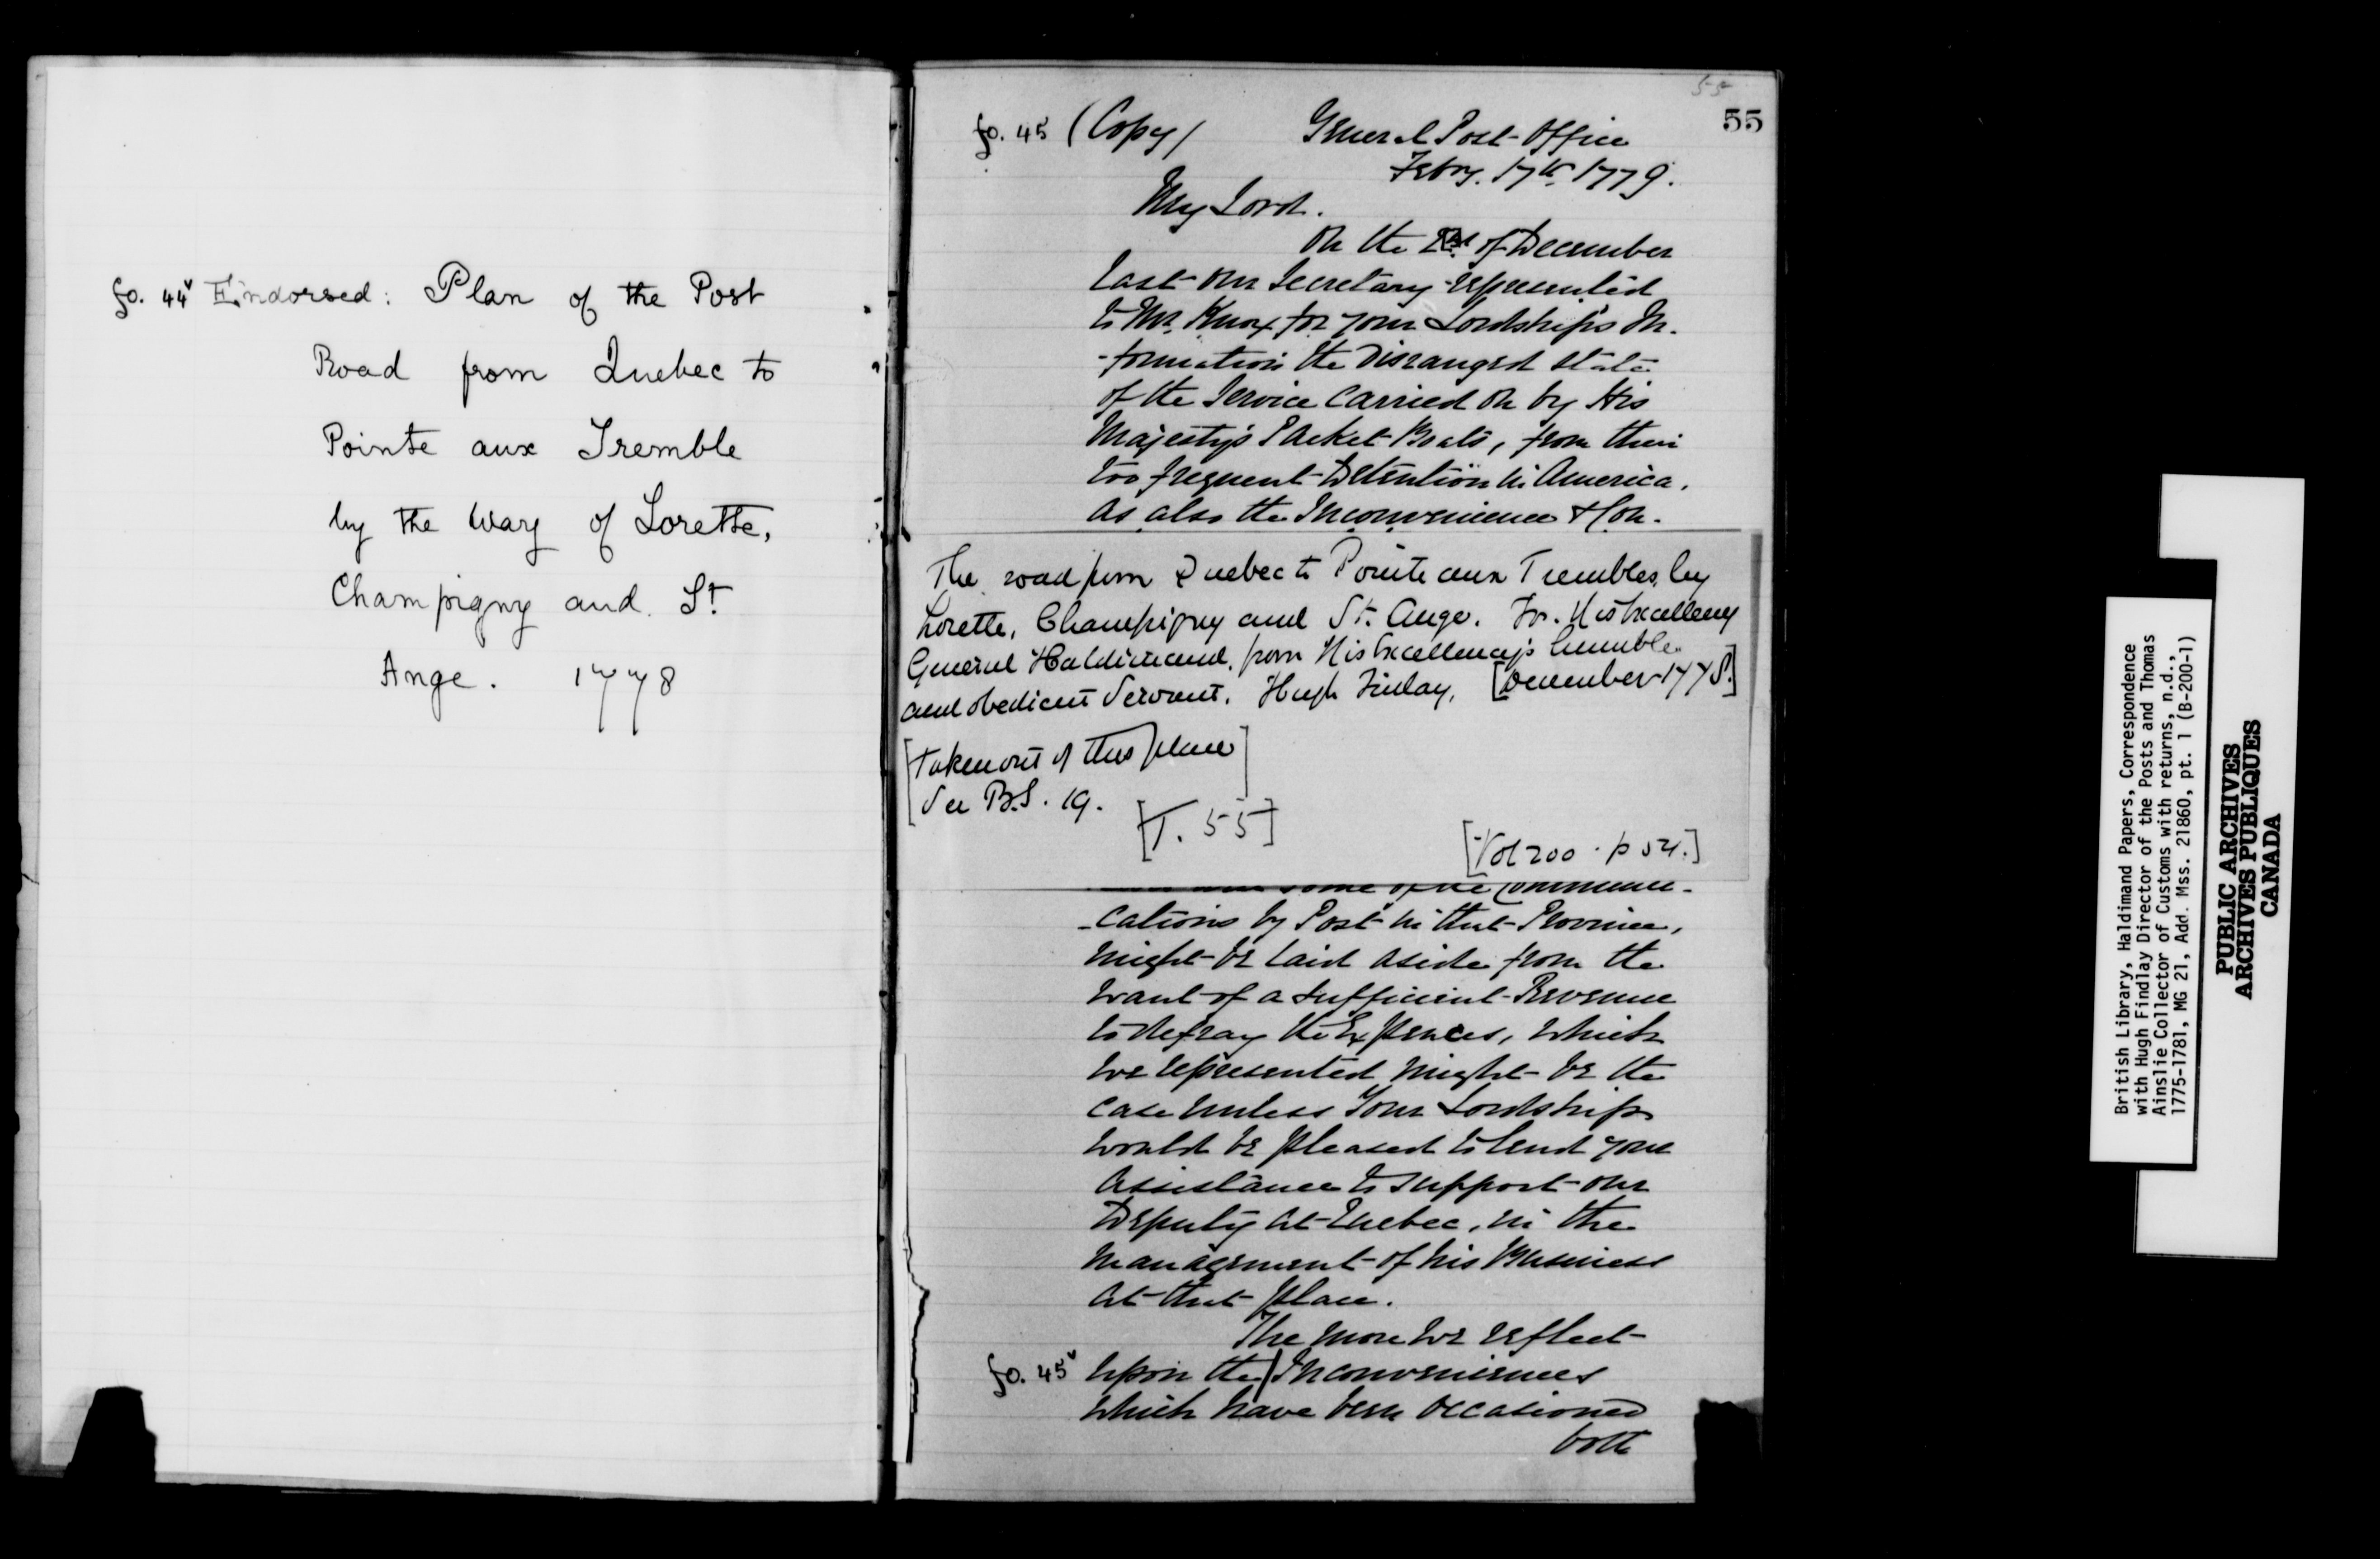 fo. 44v Endorsed: Plan of the Post
Road from Quebec to
Pointe aux Tremble
by the Way of Lorette,
Champigny and St
Ange. 1778
55
55
fo. 45 (Copy) General Post Office
Febry. 17th 1779.
My Lord.
On the of December
last our Secretary represented
to Mr. Knox for your Lordship's In-
-formation the Disranged state
of the Service carried on by His
Majesty's Packet Boats, from their
too frequent Detention in America.
As also the Inconvenience & Con-
The road from Quebec to Pointe aux Trembles, by
Lorette, Champigny and St. Ange. For His Excellency
General Haldimand, from His Excellency's humble
and obedient Servant, Hugh Finlay, [December 1778.]
[Taken out of this place]
See B.S. 19.
[T. 55]
[Vol 200. p 54.]
some of the Communi-
-cations by Post in that Province,
might be laid aside from the
want of a sufficient Revenue
to defray the Expences, which
we represented might be the
case unless Your Lordship
would be pleased to lend your
assistance to support our
Deputy at Quebec, in the
management of his Business
at that place.
The more we reflect
fo. 45v upon the/Inconveniences
which have been occasioned
both
British Library, Haldimand Papers, Correspondence
with Hugh Findlay Director of the Posts and Thomas
Ainslie Collector of Customs with returns, n.d.,
1775-1781, MG 21, Add. Mss. 21860, pt. 1 (B-200-1)
PUBLIC ARCHIVES
ARCHIVES PUBLIQUES
CANADA